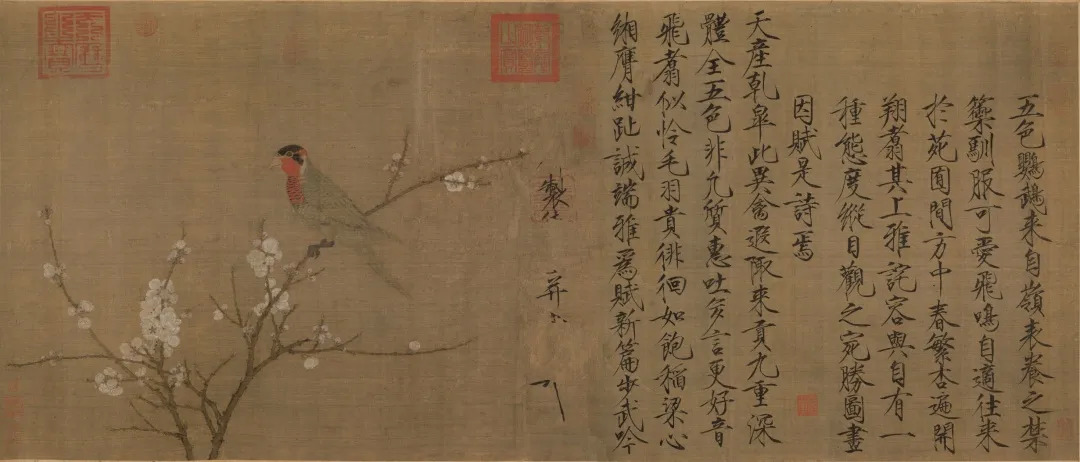 五色鸚鵡来自嶺表養之禁
籞馴服可愛飛鳴自適往来
於苑囿間方中春繁杏遍開
翔翥其上雅詫容與自有一
種態度縱目觀之宛勝圖畫
因賦是詩焉
天産乾皋此異禽遐陬来貢九重深
體全五色非凡質惠吐多言更好音
飛翥似怜毛羽貴徘徊如飽稻粱心
緗膺紺趾誠端雅爲賦新篇步武吟
製